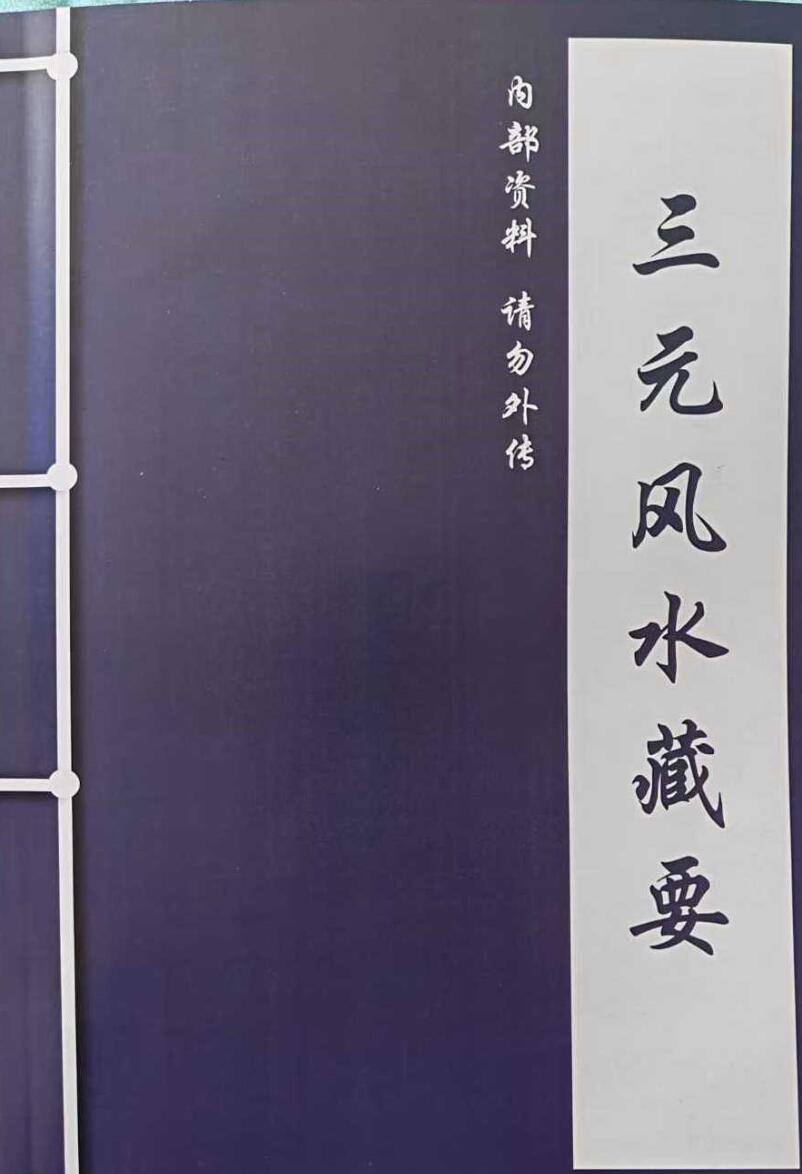 三元风水藏要
内部资料 请勿外传